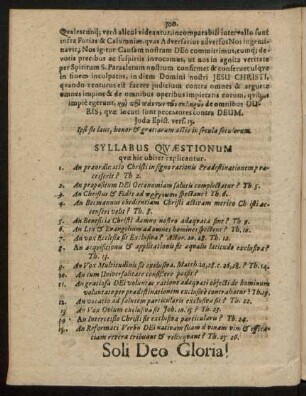 300.
infra Furias & Calumniæ, quas Adversarius adversus Nos ingemi-
navit; Nos igitur Causam nostram DEo committimus, eumq; de-
votis precibus ac suspiriis invocamus, ut nos in agnita veritate
per Spiritum S. Paracletum nostrum confirmet & conservet us que
in finem inculpatos, in diem Domini nostri JESU CHRISTI,
quando venturus est facere judicium contra omnes & arguere
omnes impios & de omnibus operibus impietatis eorum, quibus
impiè egerunt, de omnibus DU-
RIS, quæ locuti sunt peccatores contra DEUM.
Judæ Epist. vers. 15.
Ipsi sit laus, honor & gratiarum actio in secula seculorum.
SYLLABUS QVÆSTIONUM
quæ hic obiter explicantur.
1. An præordinatio Christi in signo rationis Prædestinationem præ-
cesserit? Th. 2.
2. An propositum DEI Oeconomiam salutis complectatur? Th. 5.
3. An Christus & Fides ad spectent? Th. 6.
4. An Becmannus obedientiam Christi activam merito Christi ac-
censeri velit? Th. 8.
5. An Beneficia Christi damno nostro adæquata sint? Th. 9.
6. An Lex & Evangelium ad omnes homines spectent? Th. 10.
7. An vox Ecclesia sit Exclusiva? Actor. 20. 28. Th. 12.
8. An acquisitionis & applicationis sit æqualis latitudo exclusiva?
Th. 13.
9. An Vox Multitudinis sit exclusiva. Matth. 20, 28. c. 26, 28. ? Th. 14.
10. An cum Universalitate consistere possit?
11. An gratiosa DEI voluntas ratione adæquati objecti de hominum
voluntate per prædestinationem exclusivè contrahatur? Th. 19.
12. An vocatio ad salutem particularis exclusiva sit? Th. 22.
13. An Vox Ovium exclusiva sit Joh. 10. 15? Th. 23.
14. An Intercessio Christi sit exclusiva particularis? Th. 24.
15. An Reformati Verbo DEI nativam suam divinam vim & effica-
ciam revera tribuant & relinquant? Th. 25. 26.
Soli Deo Gloria!